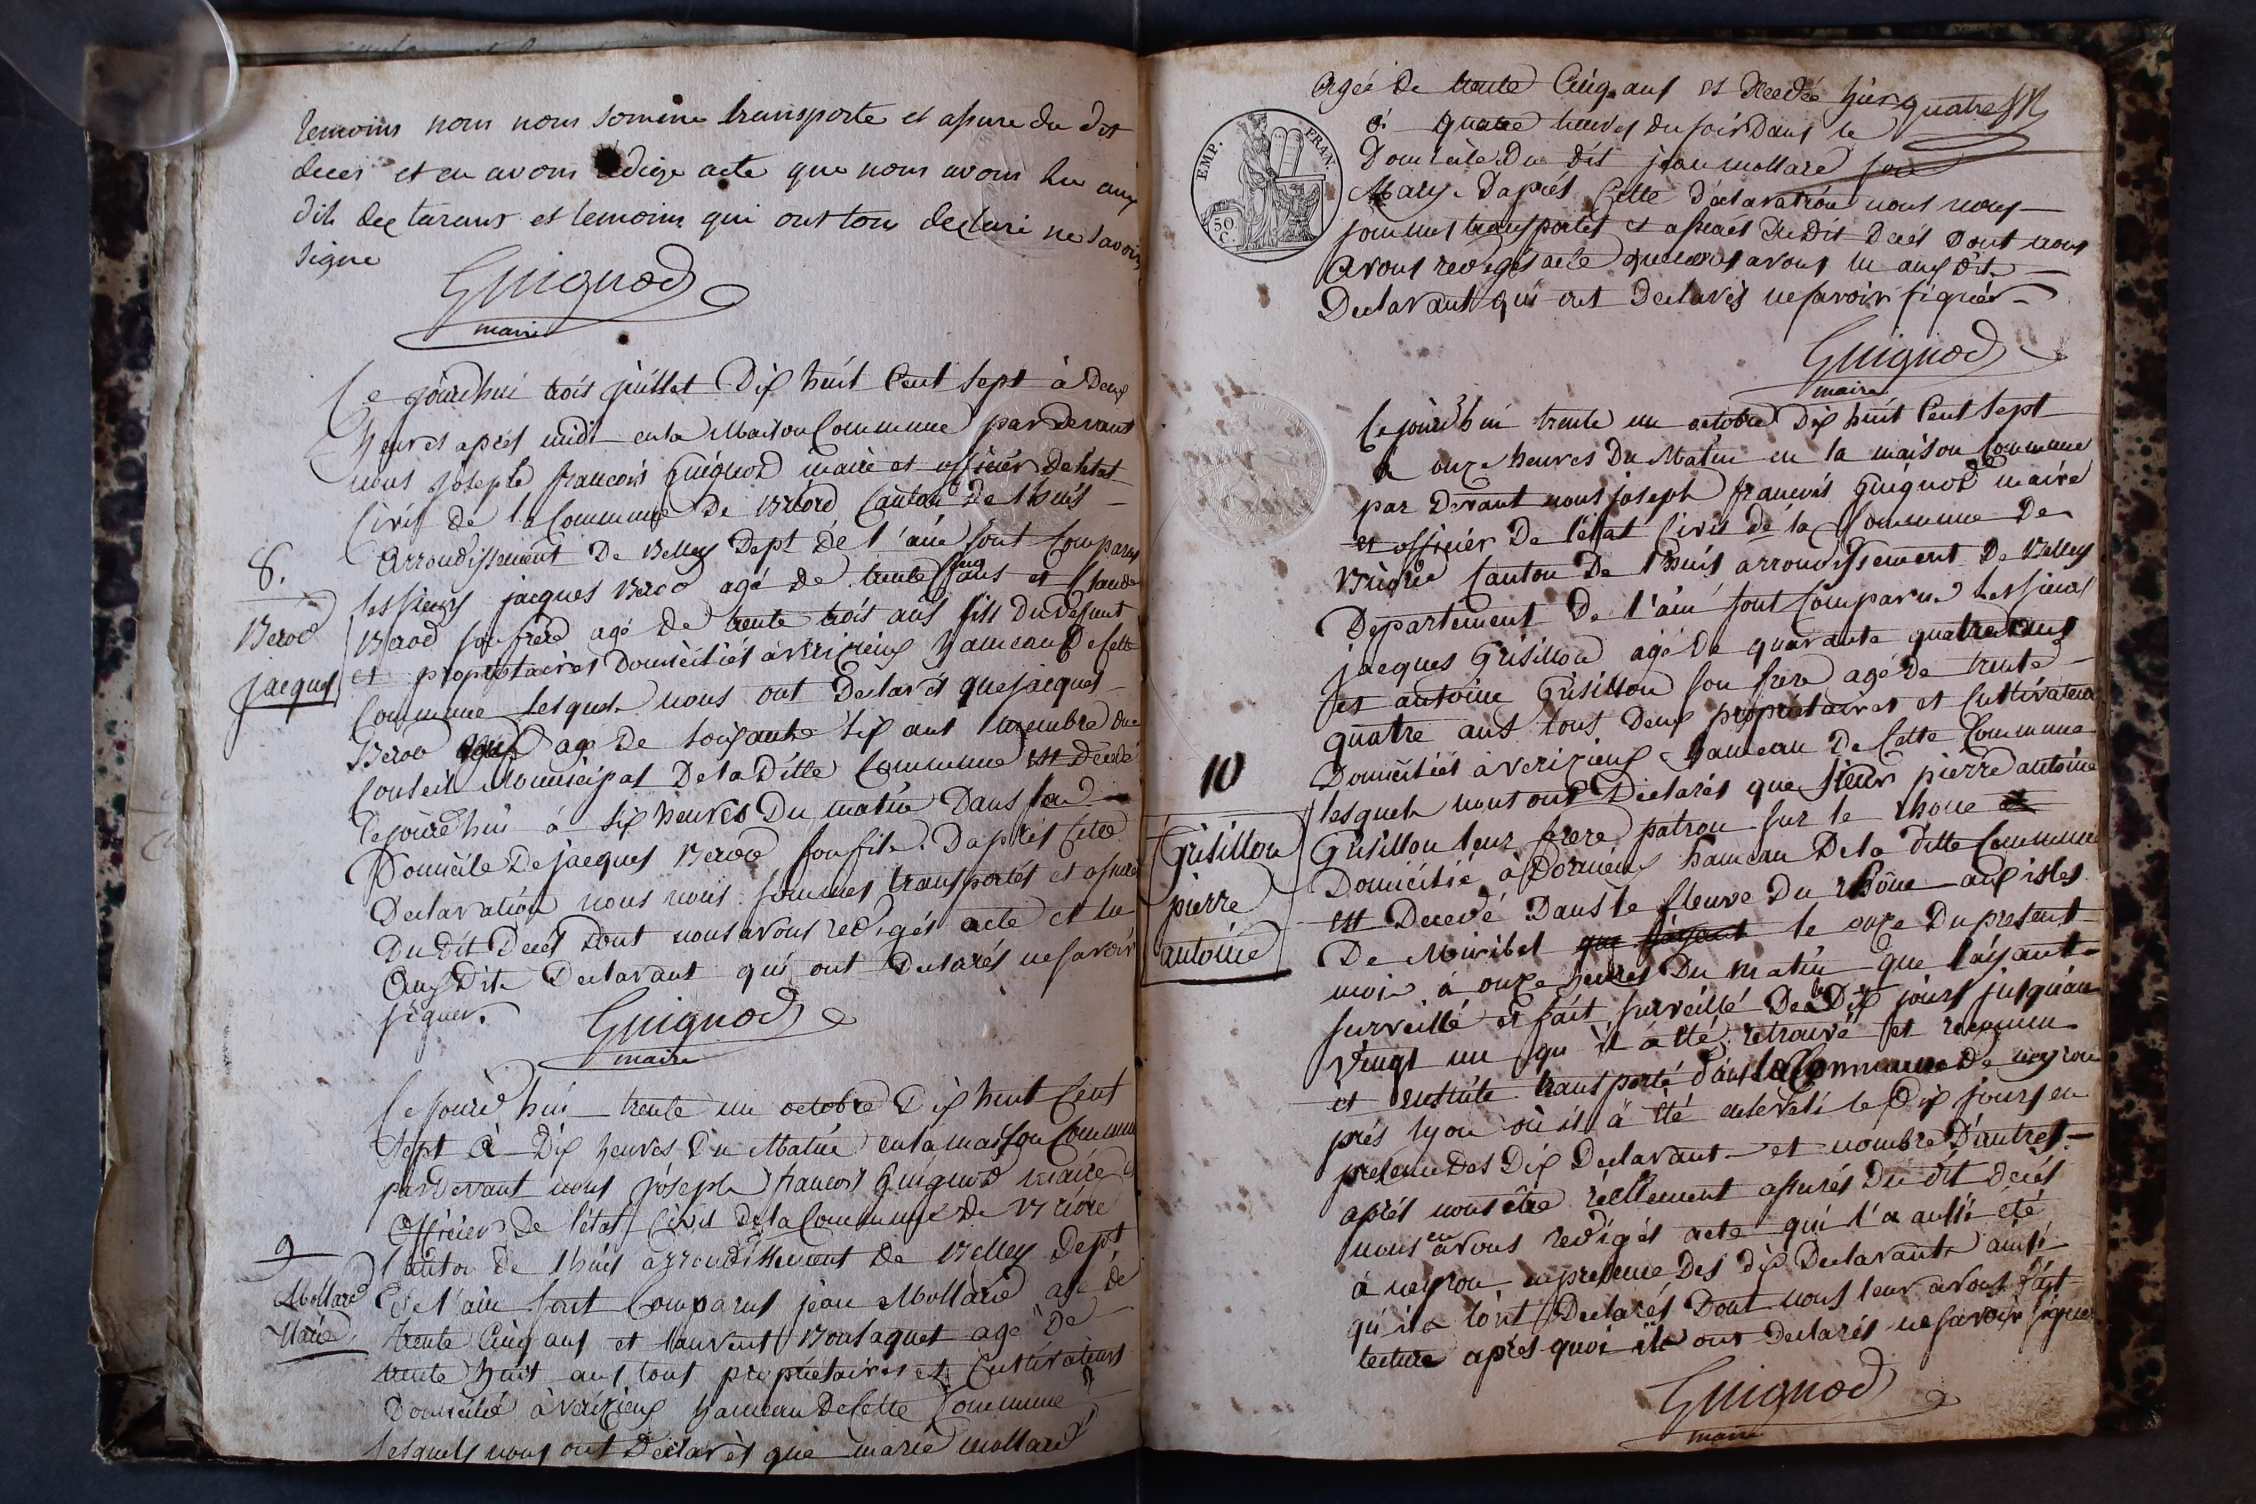 temoins nous nous somme transporte et assure du dit
deces et en avons rédige acte que nous avons lu aux
dits declarans et temoins qui ont tous declaré ne savoir
signe
Guignod
maire
Ce jourdhui trois juillet Dix huit Cent sept à Deux
heures aprés midi en la Maison Commune par devant
nous joseph francois Guignod maire et officier De letat
Civil de la Commune De Briord Canton De lhuis
arrondissement De Belley Dept de l'ain sont Comparus
8.
les sieurs jacques Berod agé de trente cinq ans et Claude
Berod
Berod son frere agé de trente trois ans fils Du defunt
et propriétaires Domiciliés à verizieux hameau De cette
jacques
Commune lesquels nous ont Declarés que jacques
Berod agé De soixante six ans membre du
Conseil Municipal De la Ditte Commune est Decedé
Cejourdhui à six heures Du matin Dans son
Domicile De jacques Berod son fils. D'aprés cette
Declaration nous nous sommes transportés et assurés
Du dit Decés Dont nous avons redigés acte et lu
aux Dits Declarant qui ont Declarés ne savoir
signer.
Guignod
maire
Cejourd'hui trente un octobre Dix huit Cent
sept à Dix heures Du Matin en la maison Commune
pardevant nous joseph francois Guignod maire et
officier De l'état Civil de la Commune De Briord
9
Canton De lhuis arrondissement De Belley Dept
Mollard
De l'ain sont Comparus jean Mollard agé de
Marie
trente Cinq ans et laurent Bonsaquet agé De
trente huit ans tous propriétaires et Cultivateurs
Domicilié à verizieux hameau De Cette Commune
lesquels nous ont Declarés que marie mollard
agée De trente Cinq ans est decedée hier quatre
EMP. FRAN.
50 C.
à quatre heures du soir Dans le
Domicile Du dit jean mollard son
Mary. D'aprés Cette Déclaration nous nous
sommes transportés et assurés Du dit Decés Dont nous
avons redigés acte que nous avons lu aux dits
Declarant qui ont Declarés ne savoir signer
Guignod
maire
Cejourd'hui trente un octobre Dix huit Cent sept
à onze heures Du Matin en la maison Commune
par Devant nous joseph francois Guignod maire
et officier De l'état Civil de la Commune De
Briord Canton De lhuis arrondissement De Belley
Departement De l'ain sont Comparu les sieurs
jacques Grisillon agé De quarante quatre ans
et antoine Grisillon son frere agé De trente
quatre ans tous Deux propriétaires et Cultivateurs
Domiciliés à verizieux hameau De Cette Commune
10
lesquels nous ont Declarés que sieur pierre antoine
Grisillon
Grisillon leur frere patron sur le Rhone et
Domicilié à Dornieu hameau De la ditte Commune
pierre
est Decedé Dans le fleuve Du Rhône aux isles
antoine
De Miribel le onze Du present
mois à onze heures Du matin que l'ayant
surveillé et fait surveillé Des Dix jours jusqu'au
vingt un qu'il a été retrouvé et reconnu
et ensuite transporté dans la Commune De neyron
prés lyon où il a été enseveli le Dix jours en
presence Des Dix Declarant et nombre D'autres
aprés nous être réellement assurés Du dit decés
nous en avons redigés acte qui l'a aussi été
à neyron en presence Des dix Declarants ainsi
qu'ils lont Declarés Dont nous leur avons fait
lecture aprés quoi ils ont declarés ne savoir signer
Guignod
maire